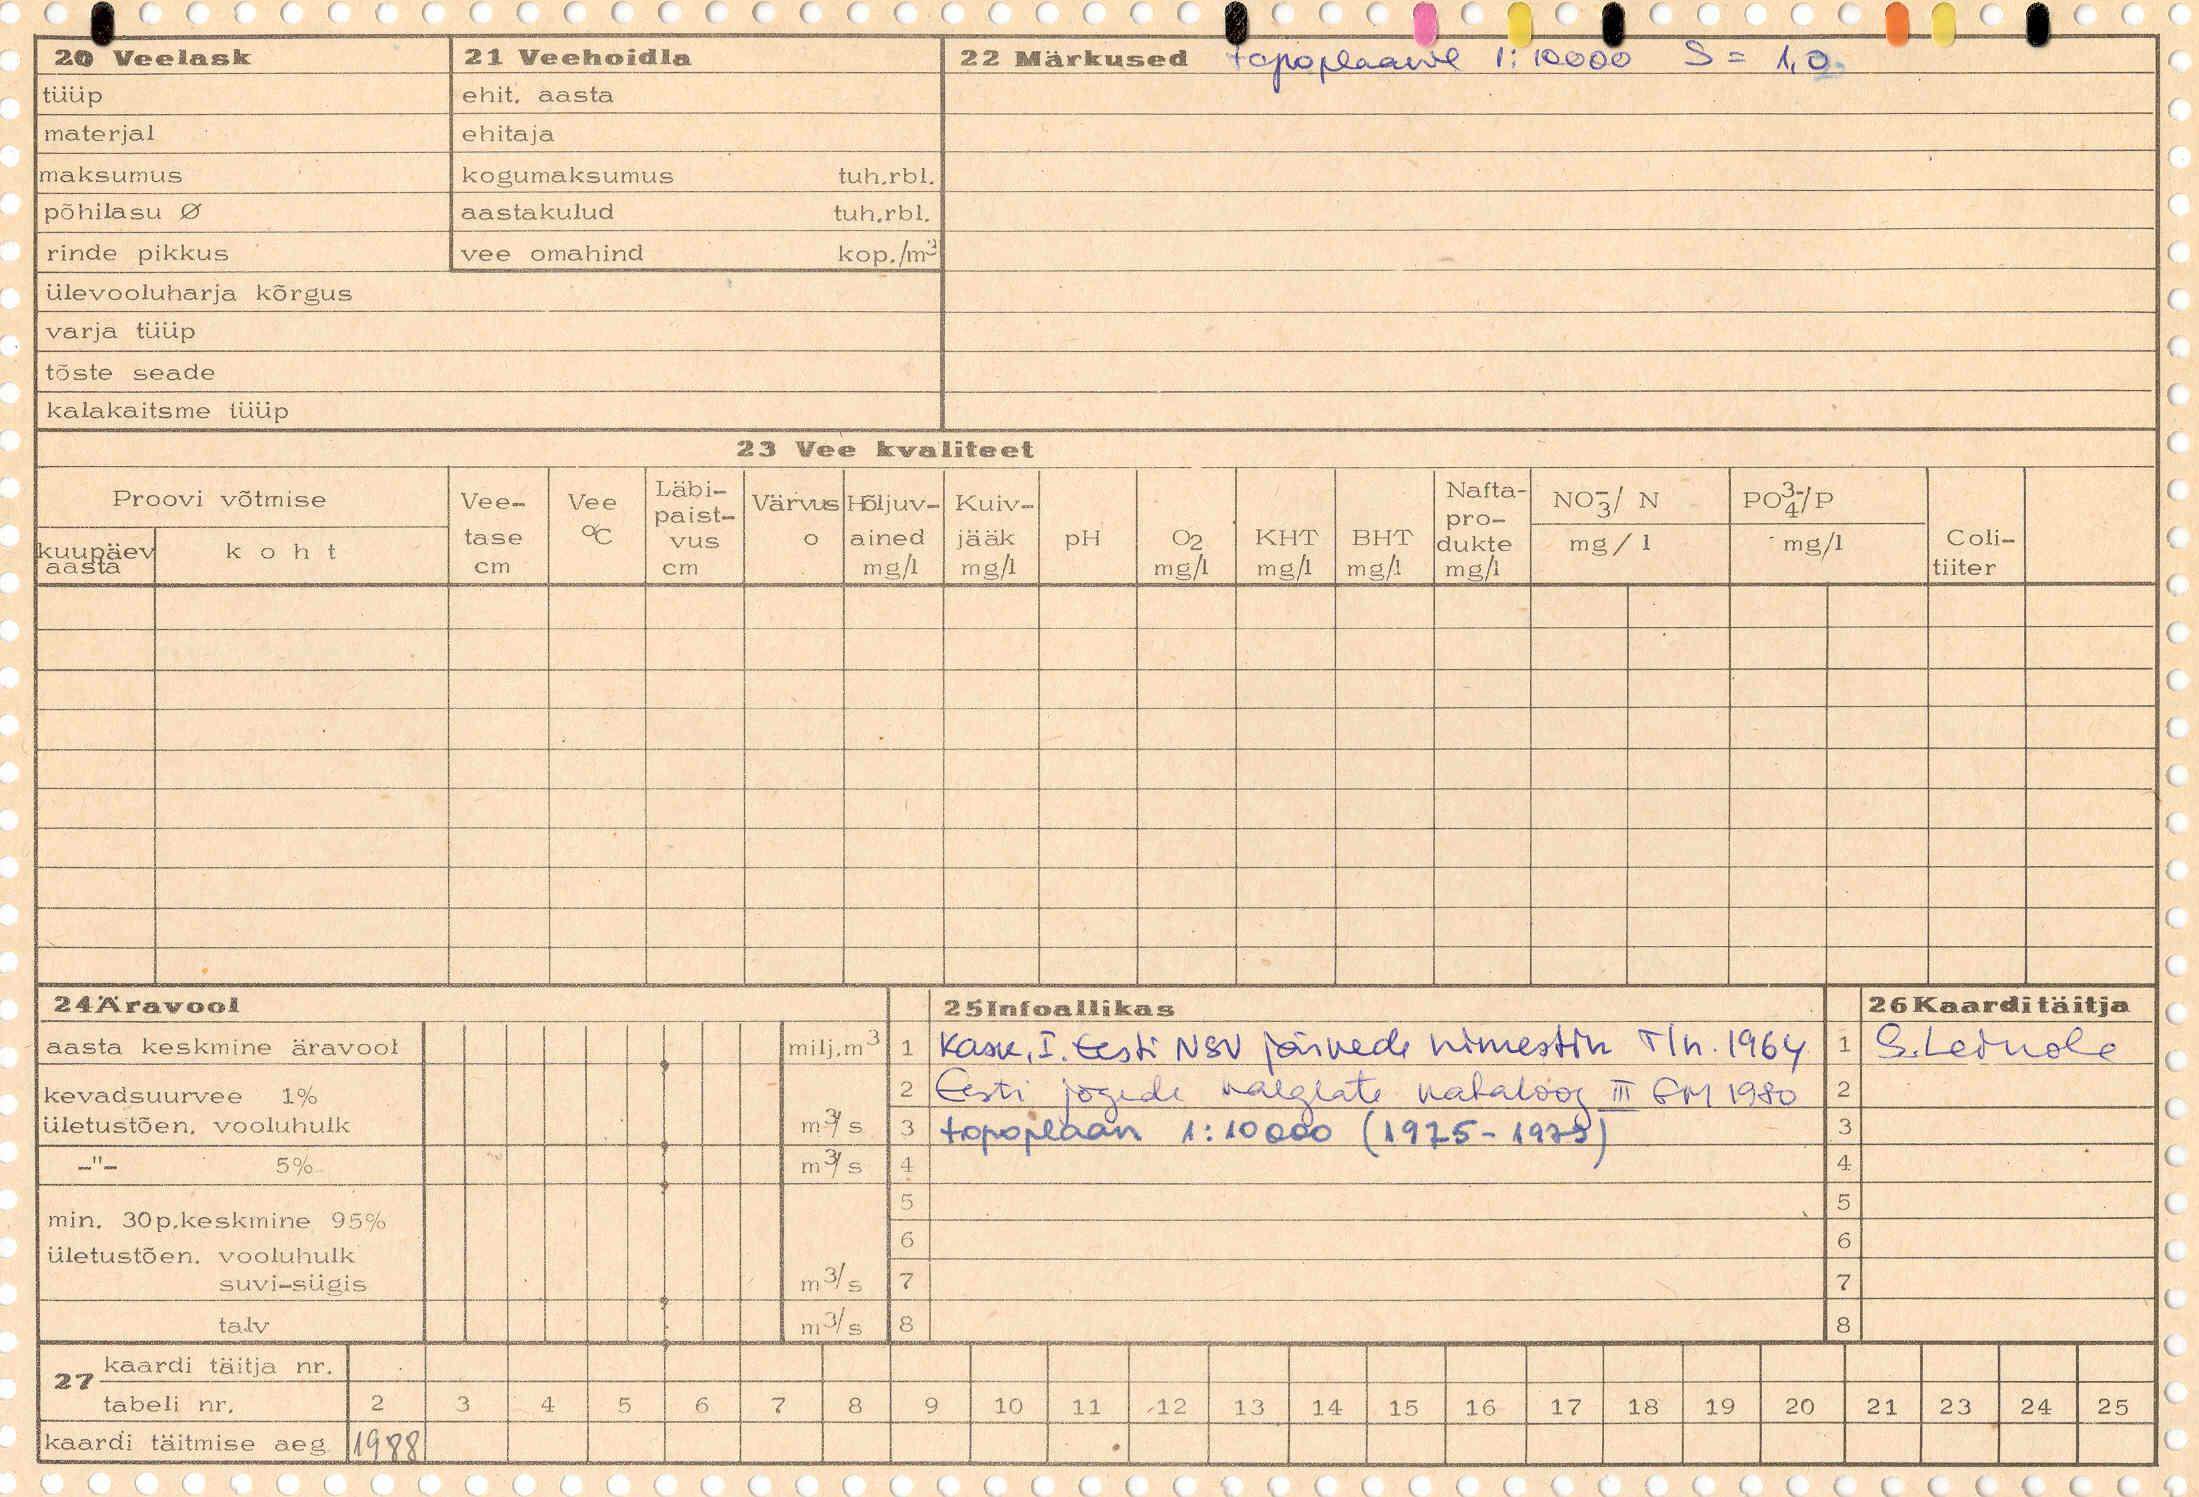 20 Veelask
tüüp
materjal
maksumus
põhilasu Ø
rinde pikkus
ülevooluharja kõrgus
varja tüüp
tõste seade
kalakaitsme tüüp
21 Veehoidla
ehit. aasta
ehitaja
kogumaksumus tuh.rbl.
aastakulud tuh.rbl.
vee omahind kop./m³
22 Märkused topoplaanil 1:10000 S = 1,0
23 Vee kvaliteet
Proovi võtmise
kuupäev aasta
koht
Vee-
tase
cm
Vee
°C
Läbi-
paist-
vus
cm
Värvus
o
Hõljuv-
ained
mg/l
Kuiv-
jääk
mg/l
pH
O₂
mg/l
KHT
mg/l
BHT
mg/l
Nafta-
pro-
dukte
mg/l
NO₃⁻/ N
mg/l
PO₄³⁻/P
mg/l
Coli-
tiiter
24 Äravool
aasta keskmine äravool milj.m³
kevadsuurvee 1%
ületustõen. vooluhulk m³/s
-"- 5% m³/s
min. 30p.keskmine 95%
ületustõen. vooluhulk
suvi-sügis m³/s
talv m³/s
25 Infoallikas
1 Kask, I. Eesti NSV järvede nimestik Tln. 1964
2 Eesti jõgede valglate kataloog III EM 1980
3 topoplaan 1:10000 (1975-1979)
4
5
6
7
8
26 Kaardi täitja
1
2
3
4
5
6
7
8
27 kaardi täitja nr.
tabeli nr. 2 3 4 5 6 7 8 9 10 11 12 13 14 15 16 17 18 19 20 21 23 24 25
kaardi täitmise aeg 1988